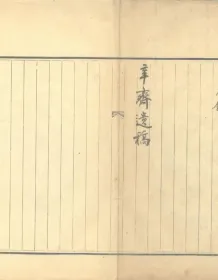 辛齋遺稿